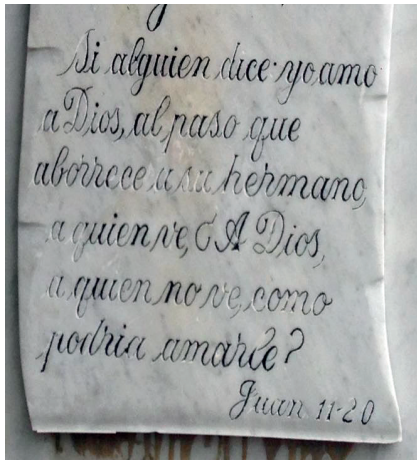 Si alguien dice: yo amo
a Dios, al paso que
aborrece a su hermano,
a quien ve, ¿A Dios,
a quien no ve, como
podria amarle?
Juan 11-20